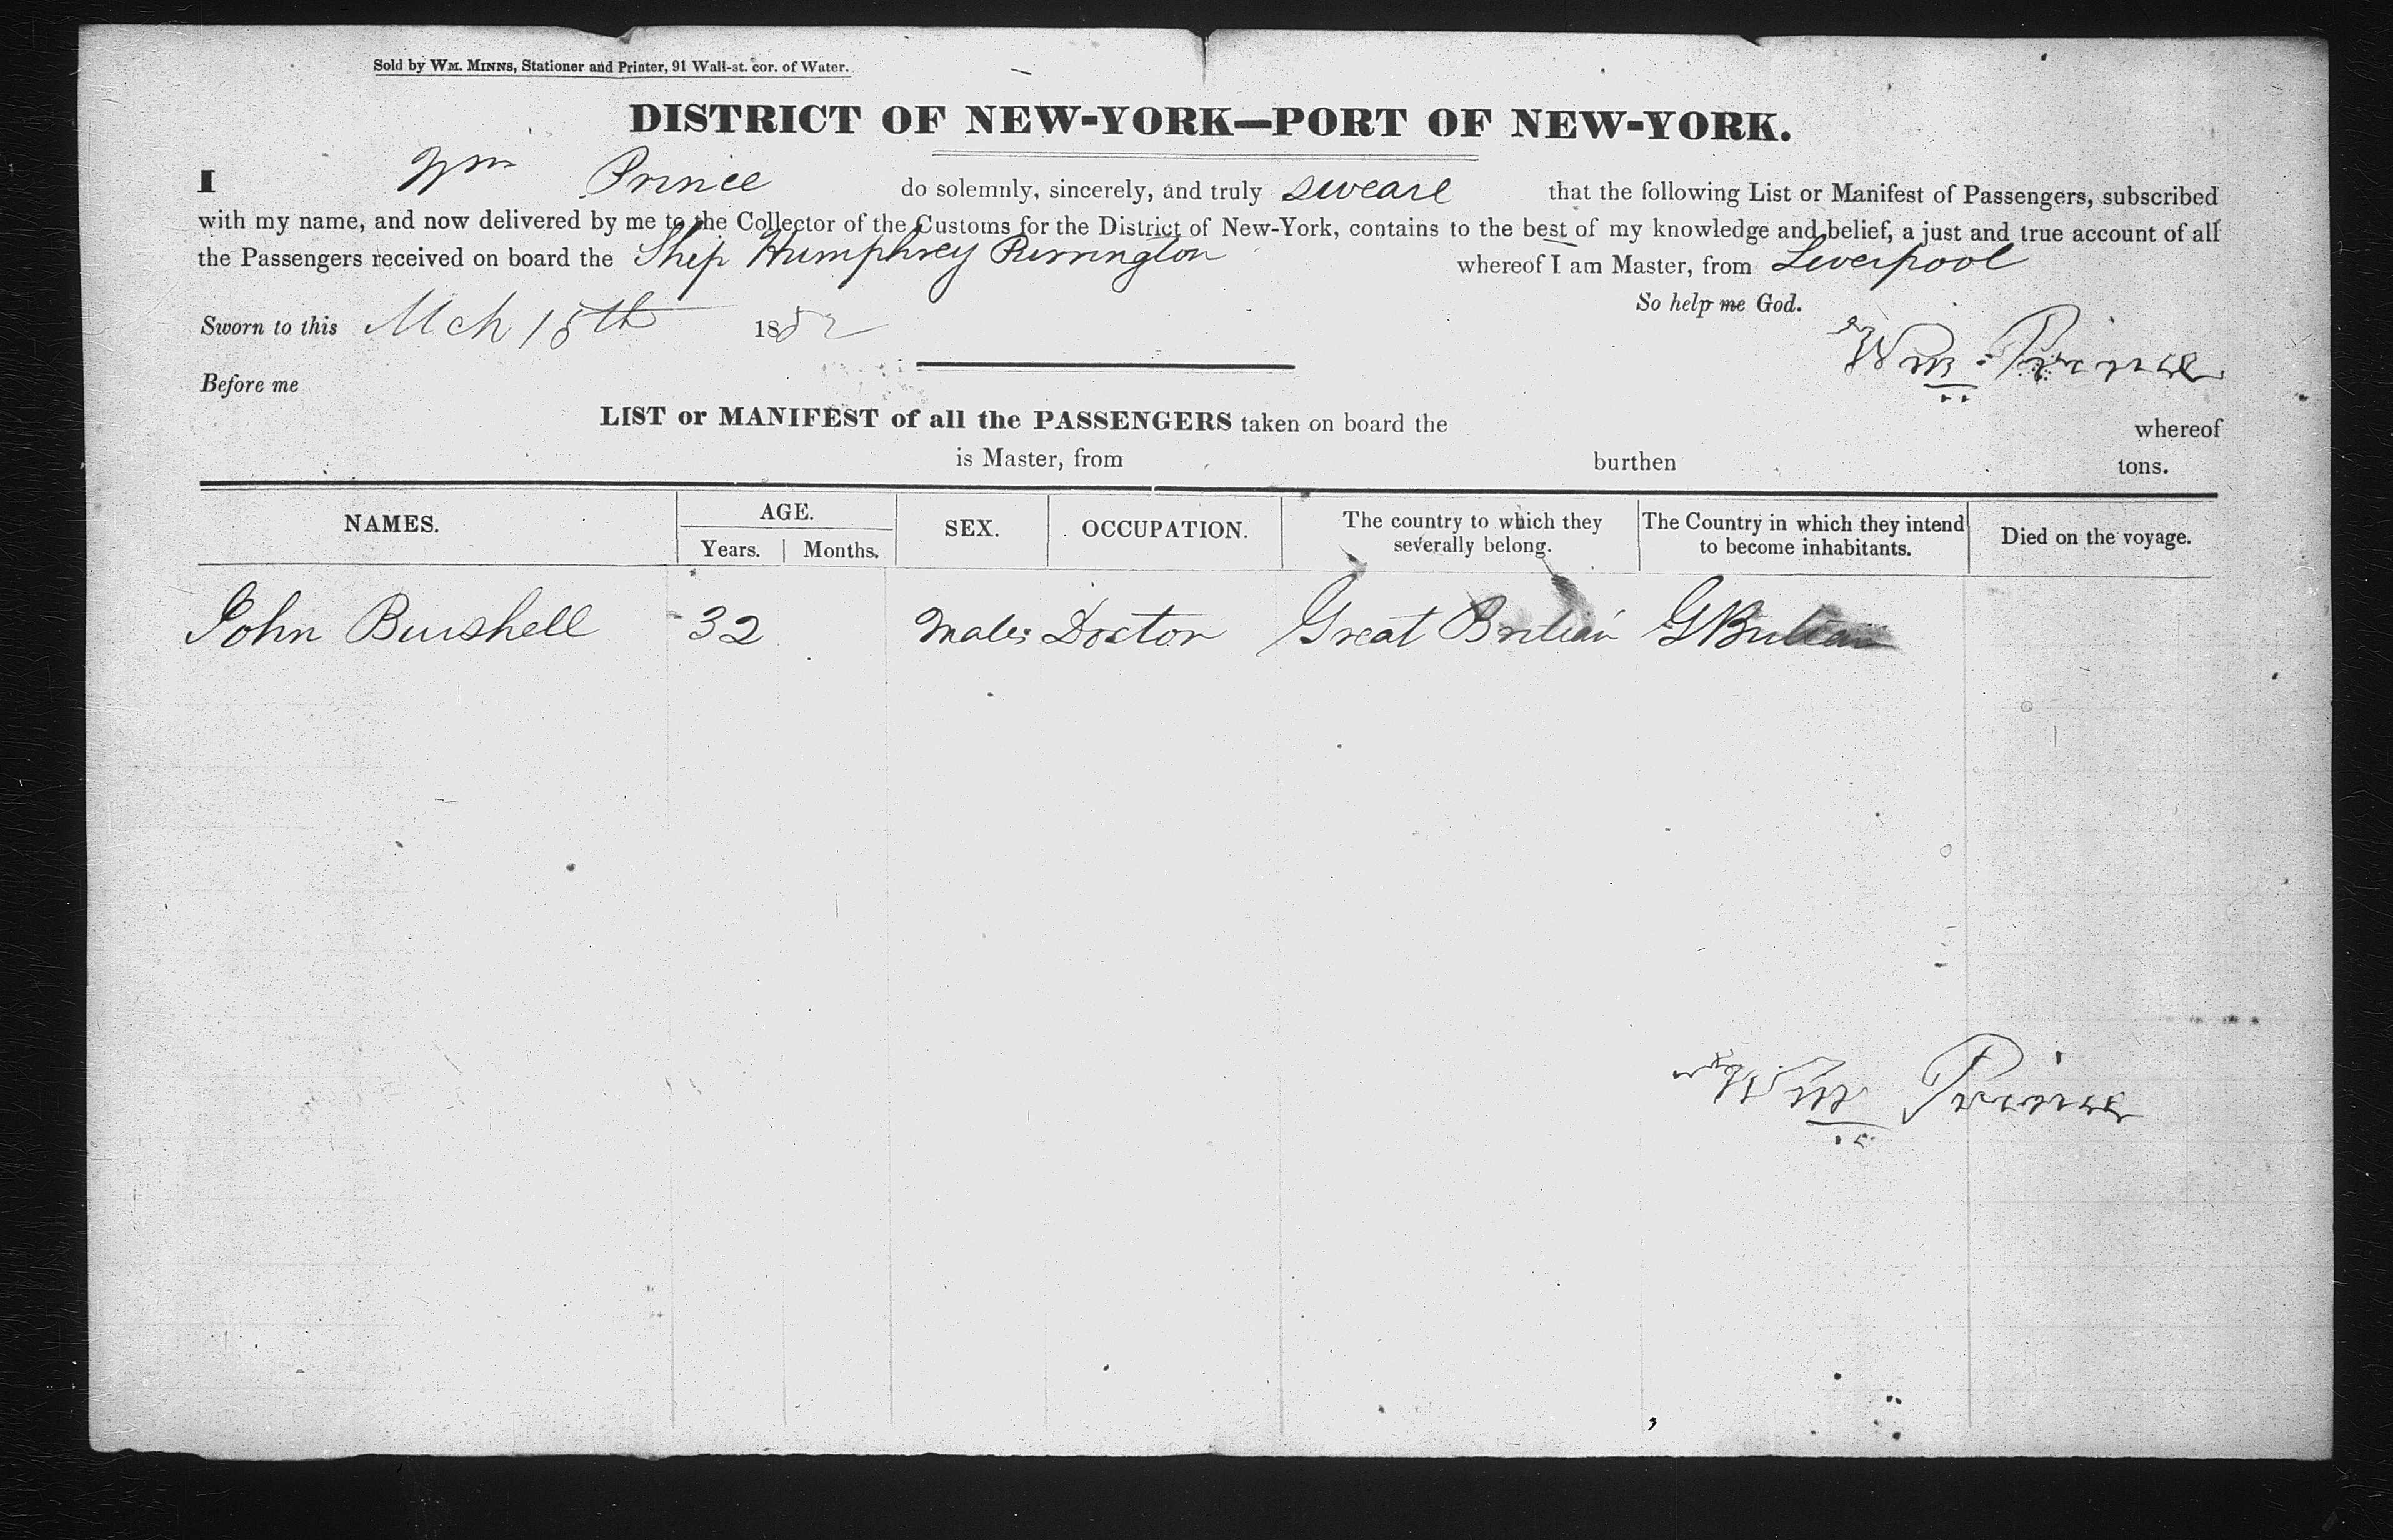 Sold by WM. MINNS, Stationer and Printer, 91 Wall-st. cor. of Water.
DISTRICT OF NEW-YORK—PORT OF NEW-YORK.
I Wm Prince do solemnly, sincerely, and truly sweare that the following List or Manifest of Passengers, subscribed
with my name, and now delivered by me to the Collector of the Customs for the District of New-York, contains to the best of my knowledge and belief, a just and true account of all
the Passengers received on board the Ship Humphrey Purrington whereof I am Master, from Liverpool
So help me God.
Sworn to this Mch 15th 1852
Wm Prince
Before me
LIST or MANIFEST of all the PASSENGERS taken on board the whereof
is Master, from burthen tons.
NAMES. AGE. Years. Months. SEX. OCCUPATION. The country to which they severally belong. The Country in which they intend to become inhabitants. Died on the voyage.
John Burshell 32 Male Doctor Great Britian G Britian
Wm Prince